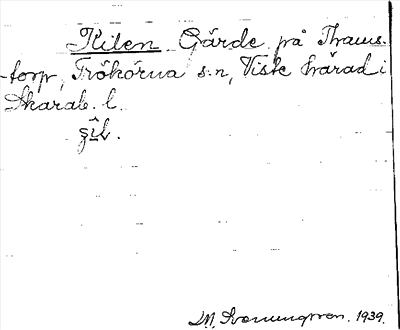 Kilen Gärde på Thams-
torp, Trökörna s:n, Viste härad i
Skarab. l.
M. Svanungsson. 1939.